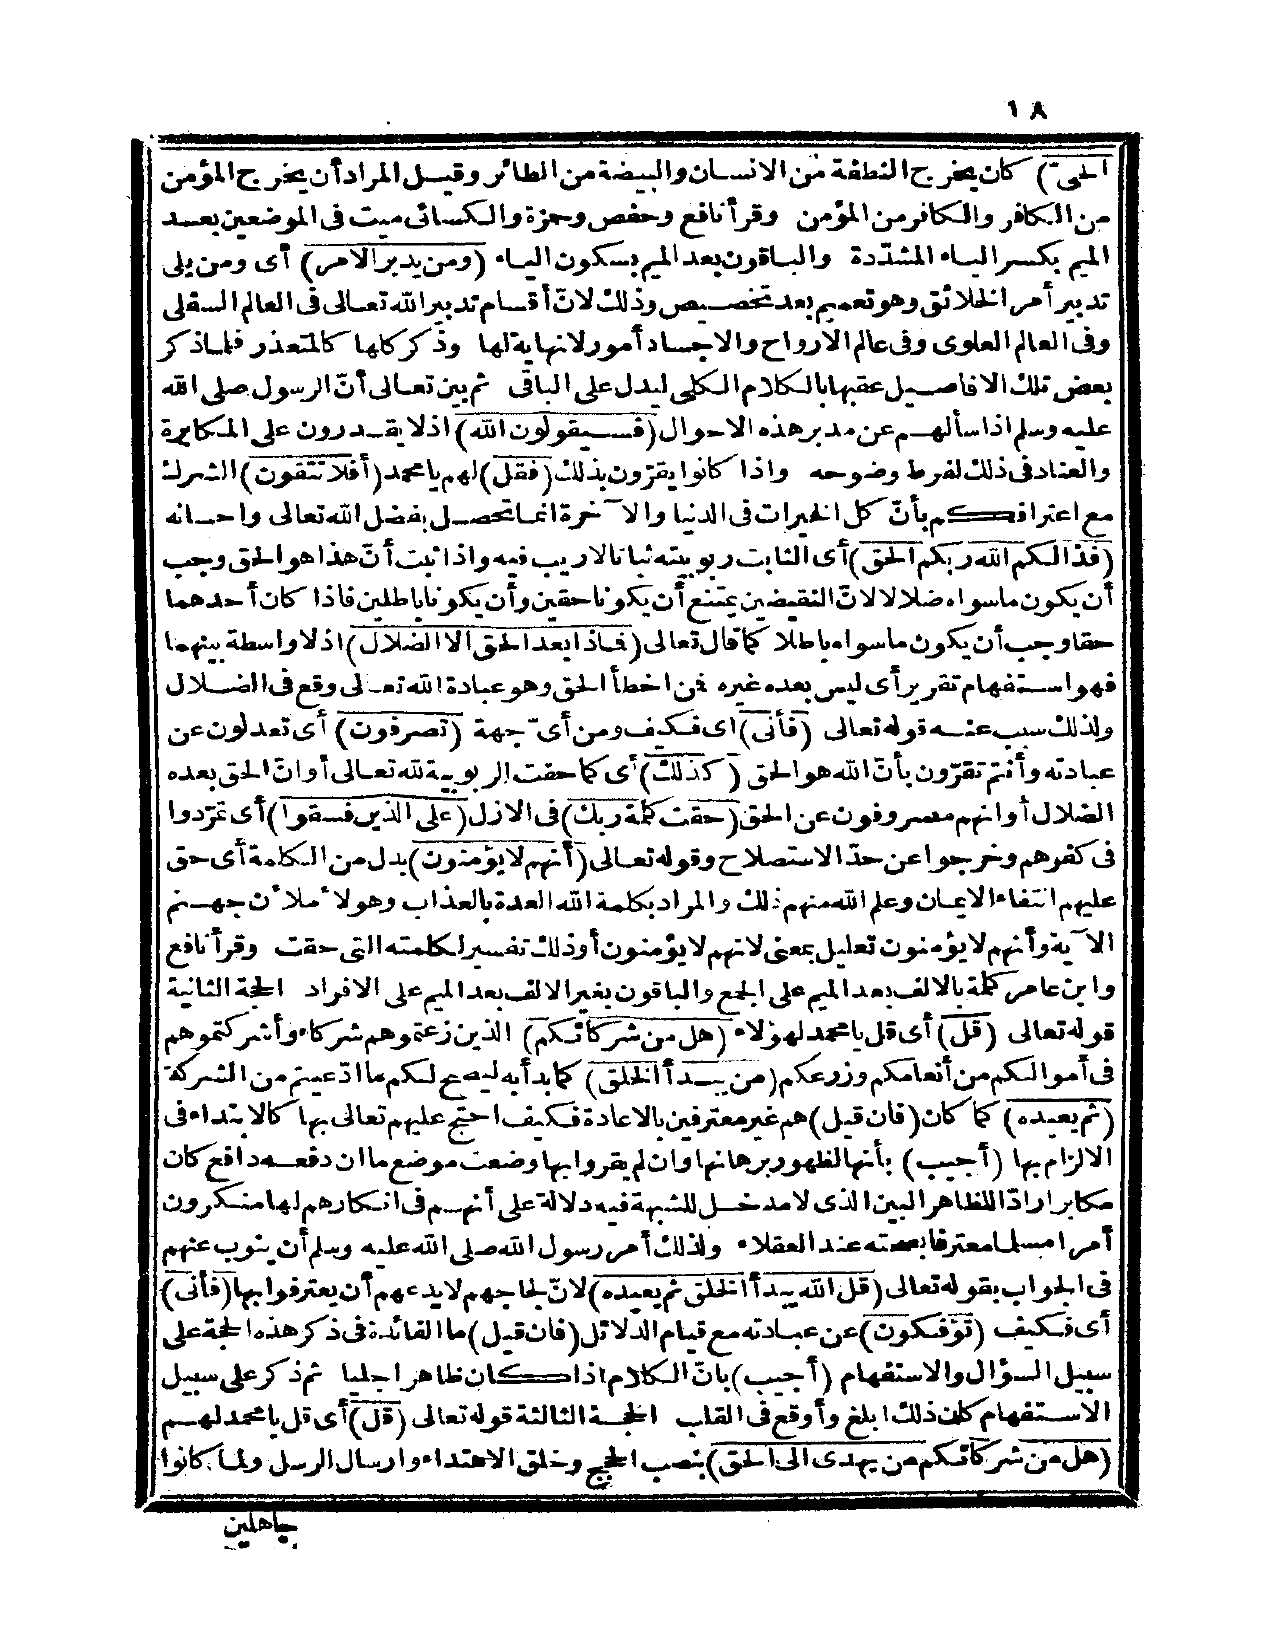 ١٨
الحىّ) كان يخرج النطفة من الانسان والبيضة من الطائر وقيل المراد أن يخرج المؤمن
من الكافر والكافر من المؤمن وقرأ نافع وحفص وحمزة والكسائى ميت فى الموضعين بعد
الميم بكسر الياء المشدّدة والباقون بعد الميم بسكون الياء (ومن يدبر الامر) أى ومن يلى
تدبير أمر الخلائق وهو تعميم بعد تخصيص وذلك لانّ أقسام تدبير الله تعالى فى العالم السفلى
وفى العالم العلوى وفى عالم الارواح والاجساد أمور لانهاية لها وذكر كلها كالمتعذر فلماذكر
بعض تلك الافاصيل عقبها بالكلام الكلى ليدل على الباقى ثم بين تعالى أنّ الرسول صلى الله
عليه وسلم اذا سألهم عن مدبر هذه الاحوال (فسيقولون الله) اذلا يقدرون على المكابرة
والعناد فى ذلك لفرط وضوحه واذا كانوا يقرّون بذلك (فقل) لهم يا محمد (أفلا تتقون) الشرك
مع اعترافكم بأنّ كل الخيرات فى الدنيا والآخرة انما تحصل بفضل الله تعالى واحسانه
(فذالكم الله ربكم الحق) أى الثابت ربوبيته ثباتا لاريب فيه واذا ثبت أنّ هذا هو الحق وجب
أن يكون ماسواه ضلالا لانّ النقيضين يمتنع أن يكونا حقين وأن يكونا باطلين فاذا كان أحدهما
حقا وجب أن يكون ماسواه باطلا كما قال تعالى (فماذا بعد الحق الا الضلال) اذلا واسطة بينهما
فهو استفهام تقرير أى ليس بعده غيره فمن اخطأ الحق وهو عبادة الله تعالى وقع فى الضلال
ولذلك سبب عنه قوله تعالى (فأنى) اى فكيف ومن أىّ جهة (تصرفون) أى تعدلون عن
عبادته وأنتم تقرّون بأنّ الله هو الحق (كذلك) أى كما حقت الربوبية لله تعالى أوانّ الحق بعده
الضلال أوانهم مصروفون عن الحق (حقت كلمة ربك) فى الازل (على الذين فسقوا) أى تمرّدوا
فى كفرهم وخرجوا عن حدّ الاستصلاح وقوله تعالى (أنهم لا يؤمنون) بدل من الكلمة أى حق
عليهم انتفاء الايمان وعلم الله منهم ذلك والمراد بكلمة الله العدة بالعذاب وهو لأملأن جهنم
الآية وأنهم لا يؤمنون تعليل بمعنى لانهم لا يؤمنون أوذلك تفسير لكلمته التى حقت وقرأ نافع
وابن عامر كلمة بالالف بعد الميم على الجمع والباقون بغير الالف بعد الميم على الافراد الحجة الثانية
قوله تعالى (قل) أى قل يا محمد لهؤلاء (هل من شركائكم) الذين زعمتوهم شركاء وأشركتموهم
فى أموالكم من أنعامكم وزرعكم (من يبدأ الخلق) كما بدأ به ليصح لكم ما ادّعيتم من الشركة
(ثم يعيده) كما كان (فان قيل) هم غير معترفين بالاعادة فكيف احتج عليهم تعالى بها كالابتداء فى
الالزام بها (أجيب) بأنها لظهور برهانها وان لم يقروا بها وضعت موضع ما ان دفعه دافع كان
مكابرا رادّا للظاهر البين الذى لا مدخل للشبهة فيه دلالة على أنهم فى انكارهم لها منكرون
أمرا مسلما معترفا بصحته عند العقلاء ولذلك أمر رسول الله صلى الله عليه وسلم أن ينوب عنهم
فى الجواب بقوله تعالى (قل الله يبدأ الخلق ثم يعيده) لانّ لجاجهم لا يدعهم أن يعترفوا بها (فأنى)
أى فكيف (تؤفكون) عن عبادته مع قيام الدلائل (فان قيل) ما الفائدة فى ذكر هذه الحجة على
سبيل السؤال والاستفهام (أجيب) بانّ الكلام اذا كان ظاهرا جليا ثم ذكر على سبيل
الاستفهام كان ذلك ابلغ وأوقع فى القلب الحجة الثالثة قوله تعالى (قل) أى قل يا محمد لهم
(هل من شركائكم من يهدى الى الحق) بنصب الحجج وخلق الاهتداء وارسال الرسل ولما كانوا
جاهلين